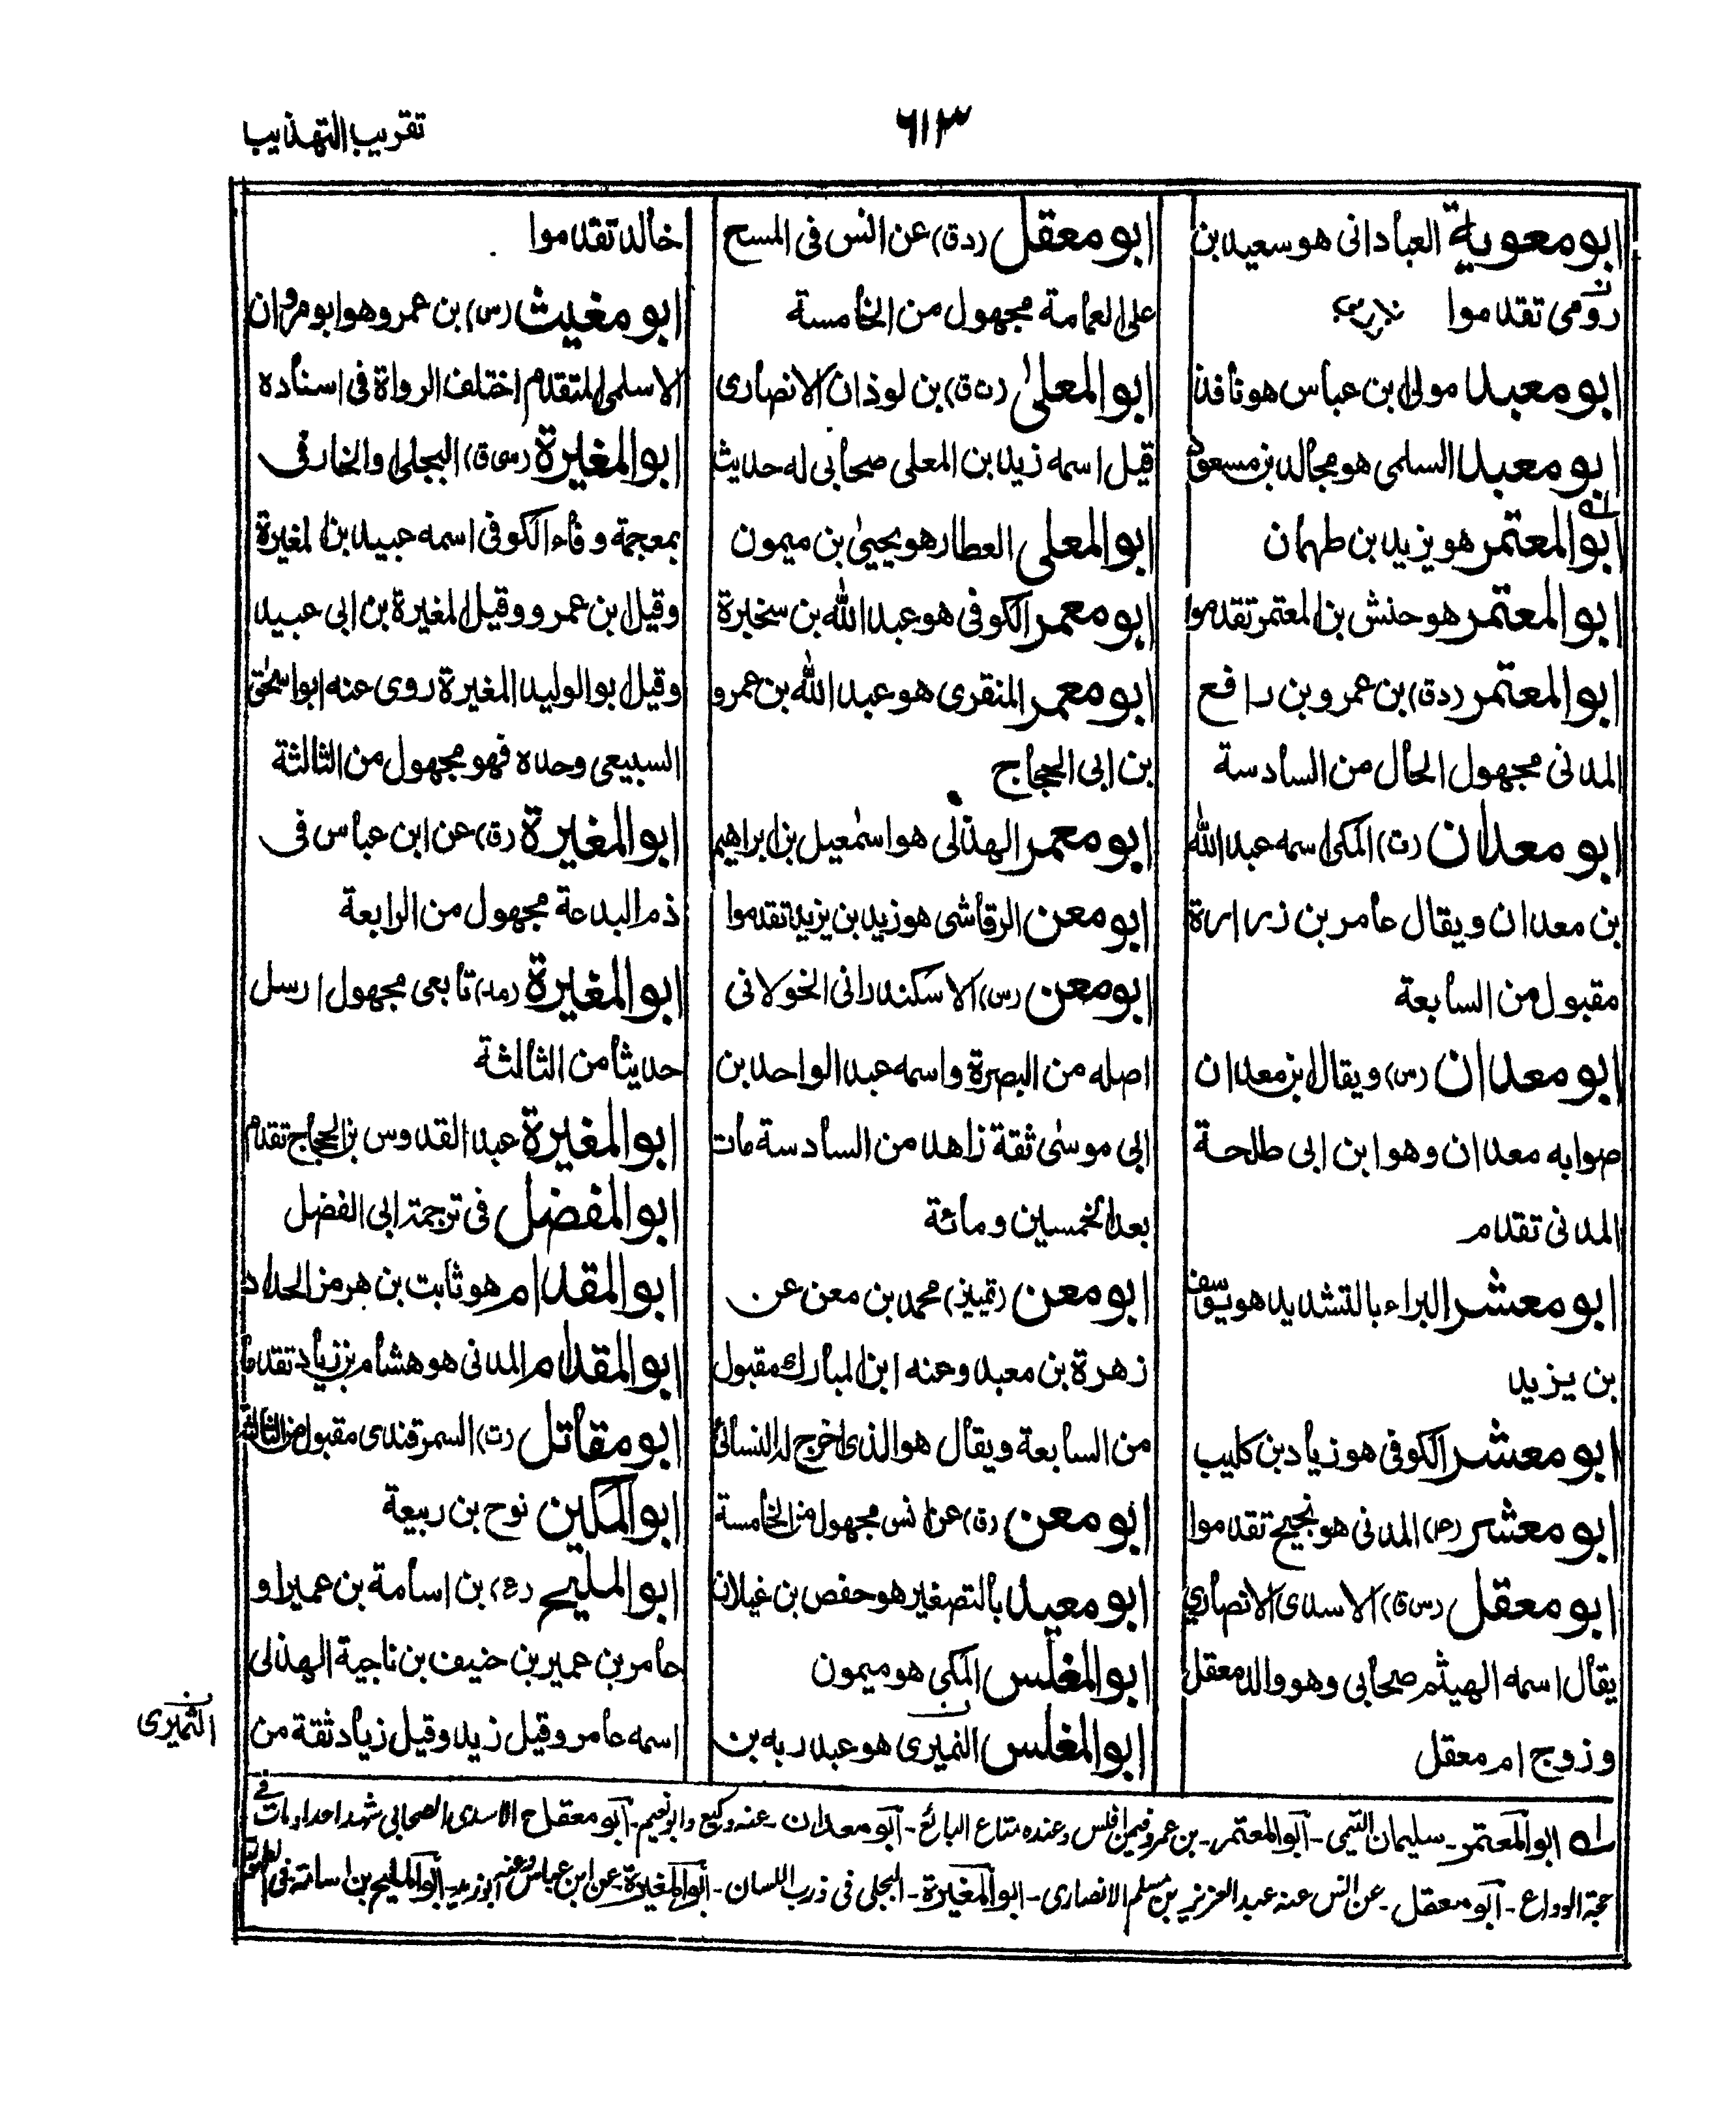 تقريب التهذيب
٦١٣
ابو معوية العبادانى هو سعيد بن
رومى تقدموا
ابو معبد مولى ابن عباس هو نافذ
ابو معبد السلمى هو مجالد بن مسعود
ابو المعتمر هو يزيد بن طهمان
ابو المعتمر هو حنش بن المعتمر تقدموا
ابو المعتمر (دق) بن عمرو بن رافع
المدنى مجهول الحال من السادسة
ابو معدان (ت) المكى اسمه عبد الله
بن معدان ويقال عامر بن زرارة
مقبول من السابعة
ابو معدان (س) ويقال ابن معدان
صوابه معدان وهو ابن ابى طلحة
المدنى تقدم
ابو معشر البراء بالتشديد هو يوسف
بن يزيد
ابو معشر الكوفى هو زياد بن كليب
ابو معشر المدنى هو نجيح تقدموا
ابو معقل (س ق) الاسدى الانصارى
يقال اسمه الهيثم صحابى وهو والد معقل
وزوج ام معقل
ابو معقل (دق) عن انس فى المسح
على العمامة مجهول من الخامسة
ابو المعلى (ت ق) بن لوذان الانصارى
قيل اسمه زيد بن المعلى صحابى له حديث
ابو المعلى العطار هو يحيى بن ميمون
ابو معمر الكوفى هو عبد الله بن سخبرة
ابو معمر المنقرى هو عبد الله بن عمرو
بن ابى الحجاج
ابو معمر الهذلى هو اسمعيل بن ابراهيم
ابو معن الرقاشى هو زيد بن يزيد تقدموا
ابو معن (س) الاسكندرانى الخولانى
اصله من البصرة واسمه عبد الواحد بن
ابى موسى ثقة زاهد من السادسة مات
بعد الخمسين ومائة
ابو معن (تمييز) محمد بن معن عن
زهرة بن معبد وعنه ابن المبارك مقبول
من السابعة ويقال هو الذى اخرج له النسائى
ابو معن (ق) عن انس مجهول من الخامسة
ابو معيد بالتصغير هو حفص بن غيلان
ابو المغلس المكى هو ميمون
ابو المغلس النميرى هو عبد ربه بن
خالد تقدموا
ابو مغيث (س) بن عمرو هو ابو مروان
الاسلمى المتقدم اختلف الرواة فى اسناده
ابو المغيرة (سى ق) البجلى والخارفى
بمعجمة وفاء الكوفى اسمه عبيد بن المغيرة
وقيل ابن عمرو وقيل المغيرة بن ابى عبيد
وقيل ابو الوليد المغيرة روى عنه ابو اسحق
السبيعى وحده فهو مجهول من الثالثة
ابو المغيرة (ق) عن ابن عباس فى
ذم البدعة مجهول من الرابعة
ابو المغيرة (مد) تابعى مجهول ارسل
حديثا من الثالثة
ابو المغيرة عبد القدوس بن الحجاج تقدم
ابو المفضل فى ترجمة ابى الفضل
ابو المقدام هو ثابت بن هرمز الحداد
ابو المقدام المدنى هو هشام بن زياد تقدما
ابو مقاتل (ت) السمرقندى مقبول من الثالثة
ابو المكين نوح بن ربيعة
ابو المليح (ع) بن اسامة بن عمير او
عامر بن عمير بن حنيف بن ناجية الهذلى
اسمه عامر وقيل زيد وقيل زياد ثقة من
النميرى
له ابو المعتمر۔ سليمان التيمى۔ ابو المعتمر۔ بن عمرو فيمن افلس وعنده متاع البائع۔ ابو معدان۔ عنه وكيع وابو نعيم۔ ابو معقل الاسدى الصحابى شهد احدا ومات فى
حجة الوداع۔ ابو معقل۔ عن انس عنه عبد العزيز بن مسلم الانصارى۔ ابو المغيرة۔ البجلى فى ذرب اللسان۔ ابو المغيرة عن ابن عباس وعنه ابو زيد۔ ابو المليح بن اسامة